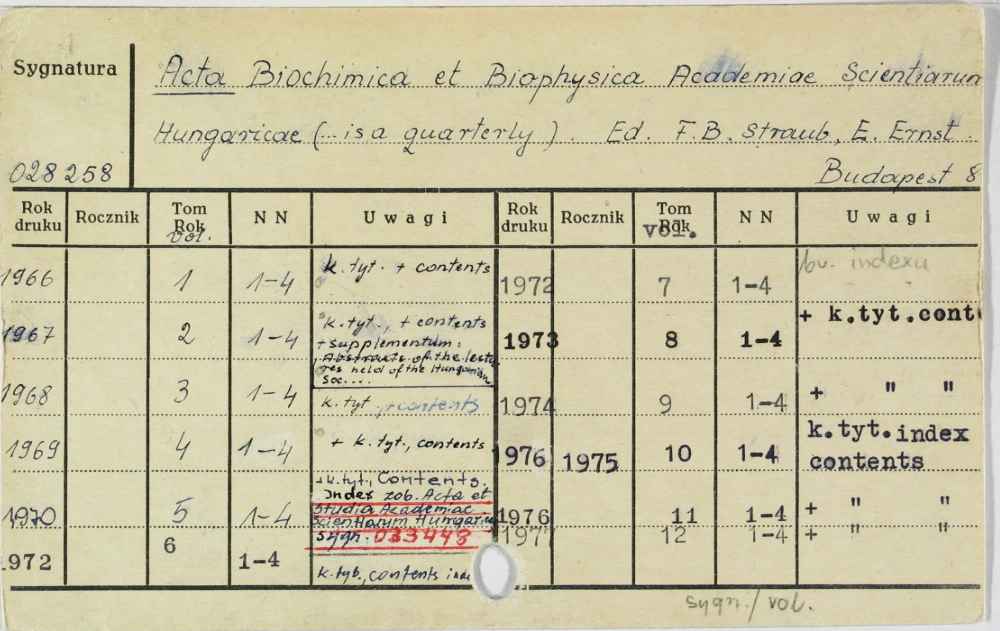 Sygnatura
Acta Biochimica et Biophysica Academiae Scientiarum
Hungaricae (... is a quarterly). Ed. F.B. Straub, E. Ernst.
028258
Budapest 8
Rok druku Rocznik Tom Rok vol. NN Uwagi Rok druku Rocznik Tom Rok vol. NN Uwagi
1966 1 1-4 k. tyt. + contents 1972 7 1-4 indexu
1967 2 1-4 k. tyt., + contents 1973 8 1-4 + k.tyt.cont
+ supplementum:
Abstracts of the lectu
res held of the Hungarian
Soc....
1968 3 1-4 k. tyt., + contents 1974 9 1-4 + " "
1969 4 1-4 + k. tyt., contents 1976 1975 10 1-4 k.tyt.index
contents
1970 5 1-4 +k.tyt., Contents. 1976 11 1-4 + " "
Index zob. Acta et
Studia Academiae
Scientiarum Hungaric
sygn. 033448 197 12 1-4 + " "
1972 6 1-4 k. tyt., contents inde
sygn./vol.